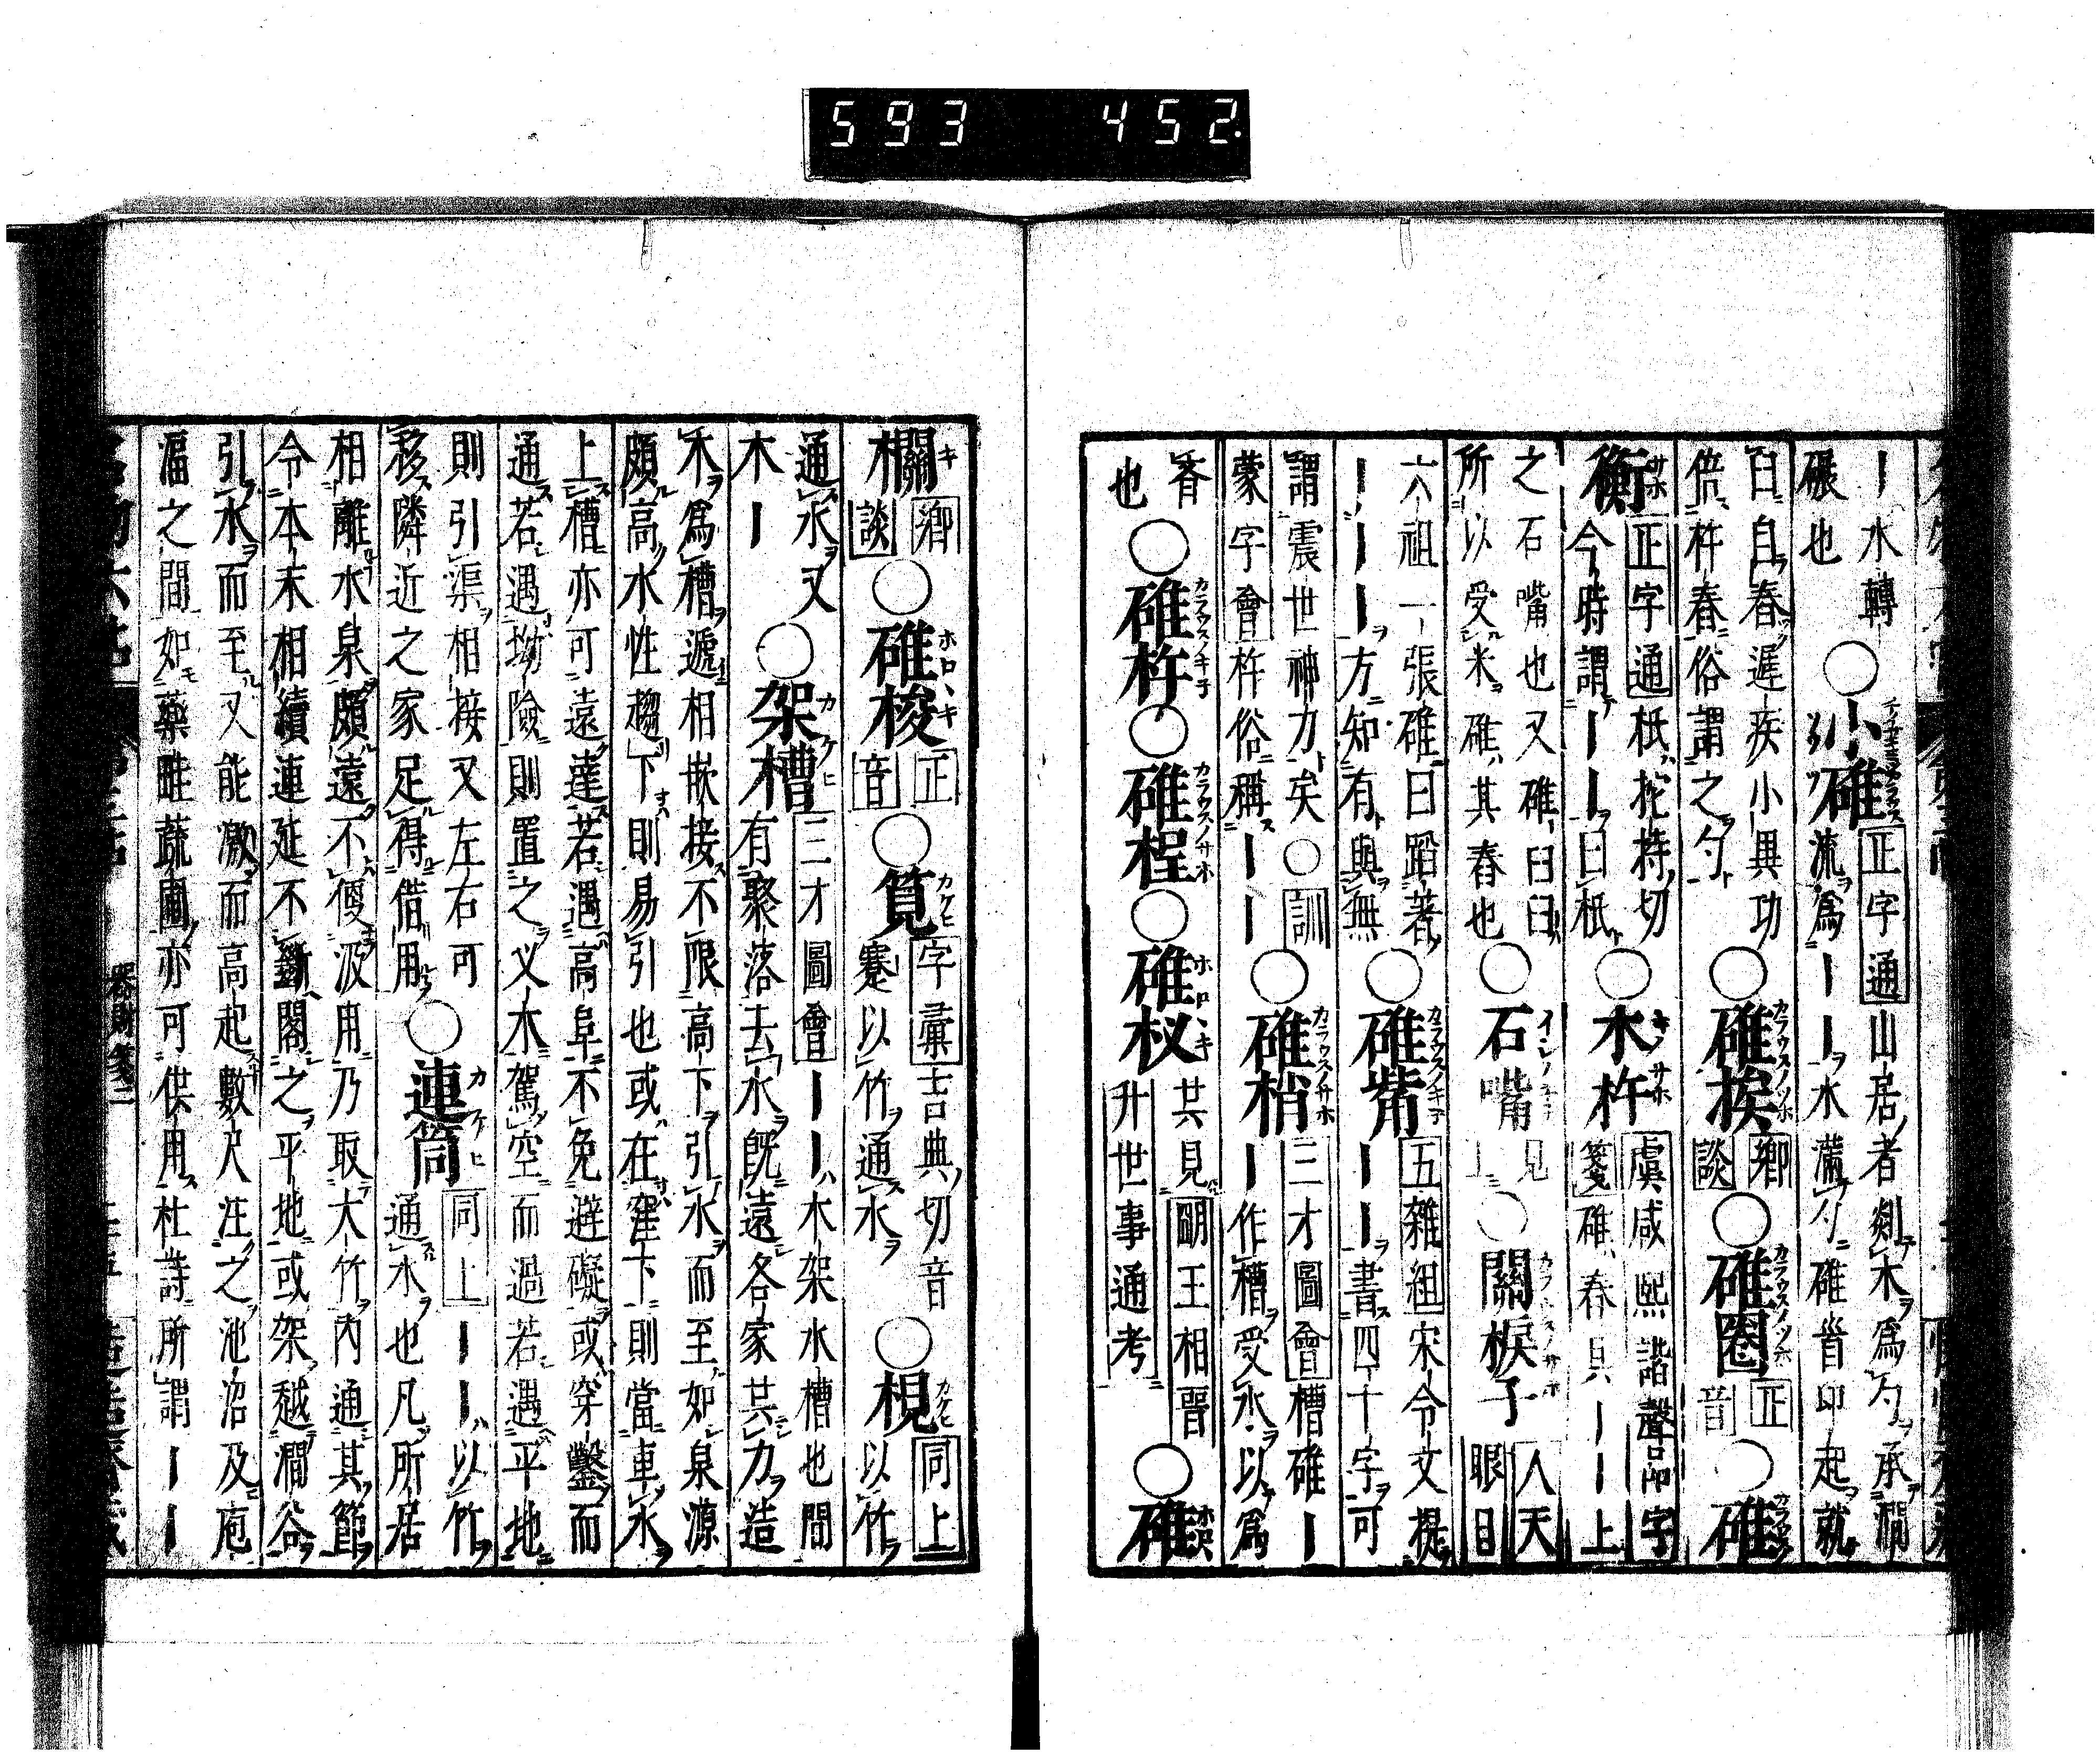 593 452
｜水轉
碾也
○小碓
正字通山居者剡木爲勺承澗
流爲｜｜水滿勺碓首卬起就
臼自舂遲疾小異功
倍杵舂俗謂之勺
○碓桵
鄉談
○碓圈
正音
○碓
衡
正字通柢抡持切
今時謂｜｜曰柢
○木杵
虞咸熙諧聲品字
箋碓舂具｜｜上
之石嘴也又碓臼臼
所以受米碓其舂也
○石嘴
見上
○關棙子
人天眼目
六祖一張碓曰蹈著
｜｜｜方知有與無
○碓觜
五雜組宋令文提
｜｜｜書四十字可
謂震世神力矣○訓
蒙字會杵俗稱｜｜
○碓梢
三才圖會槽碓｜
｜作槽受水以爲
舂也
○碓杵○碓桯○碓杈
其見明王相晋
升世事通考
○碓
欄
鄉談
○碓梭
正音
○筧
字彙吉典切音
蹇以竹通水
○梘
同上
以竹
通水又
木｜
○架槽
三才圖會｜｜木架水槽也間
有聚落去水既遠各家共力造
木爲槽遞相嵌接不限高下引水而至如泉源
頗高水性趨下則易引也或在窪下則當車水
上槽亦可遠達若遇高阜不免避礙或穿鑿而
通若遇坳險則置之乂木駕空而過若遇平地
則引渠相接又左右可
移隣近之家足得借用
○連筒
同上｜｜以竹
通水也凡所居
相離水泉頗遠不便汲用乃取大竹內通其節
令本末相續連延不斷閣之平地或架越澗谷
引水而至又能激而高起數尺注之池沼及庖
湢之間如藥畦蔬圃亦可供用杜詩所謂｜｜
器財箋二